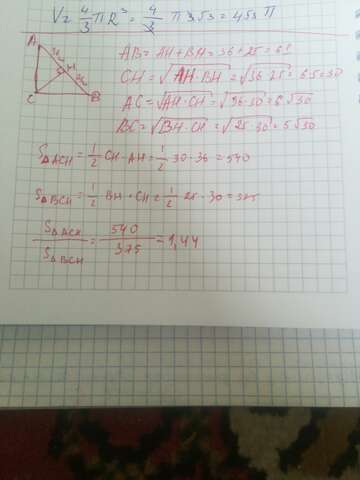 V = 4/3 πR³ = 4/3 π 3√3 = 4√3 π
A
36
H
25
C
B
AB = AH + BH = 36 + 25 = 61
CH = √AH·BH = √36·25 = 6·5 = 30
AC = √AH·CH = √36·30 = 6√30
BC = √BH·CH = √25·30 = 5√30
S△ACH = 1/2 CH·AH = 1/2 · 30·36 = 540
S△BCH = 1/2 BH·CH = 1/2 · 25·30 = 375
S△ACH / S△BCH = 540 / 375 = 1,44